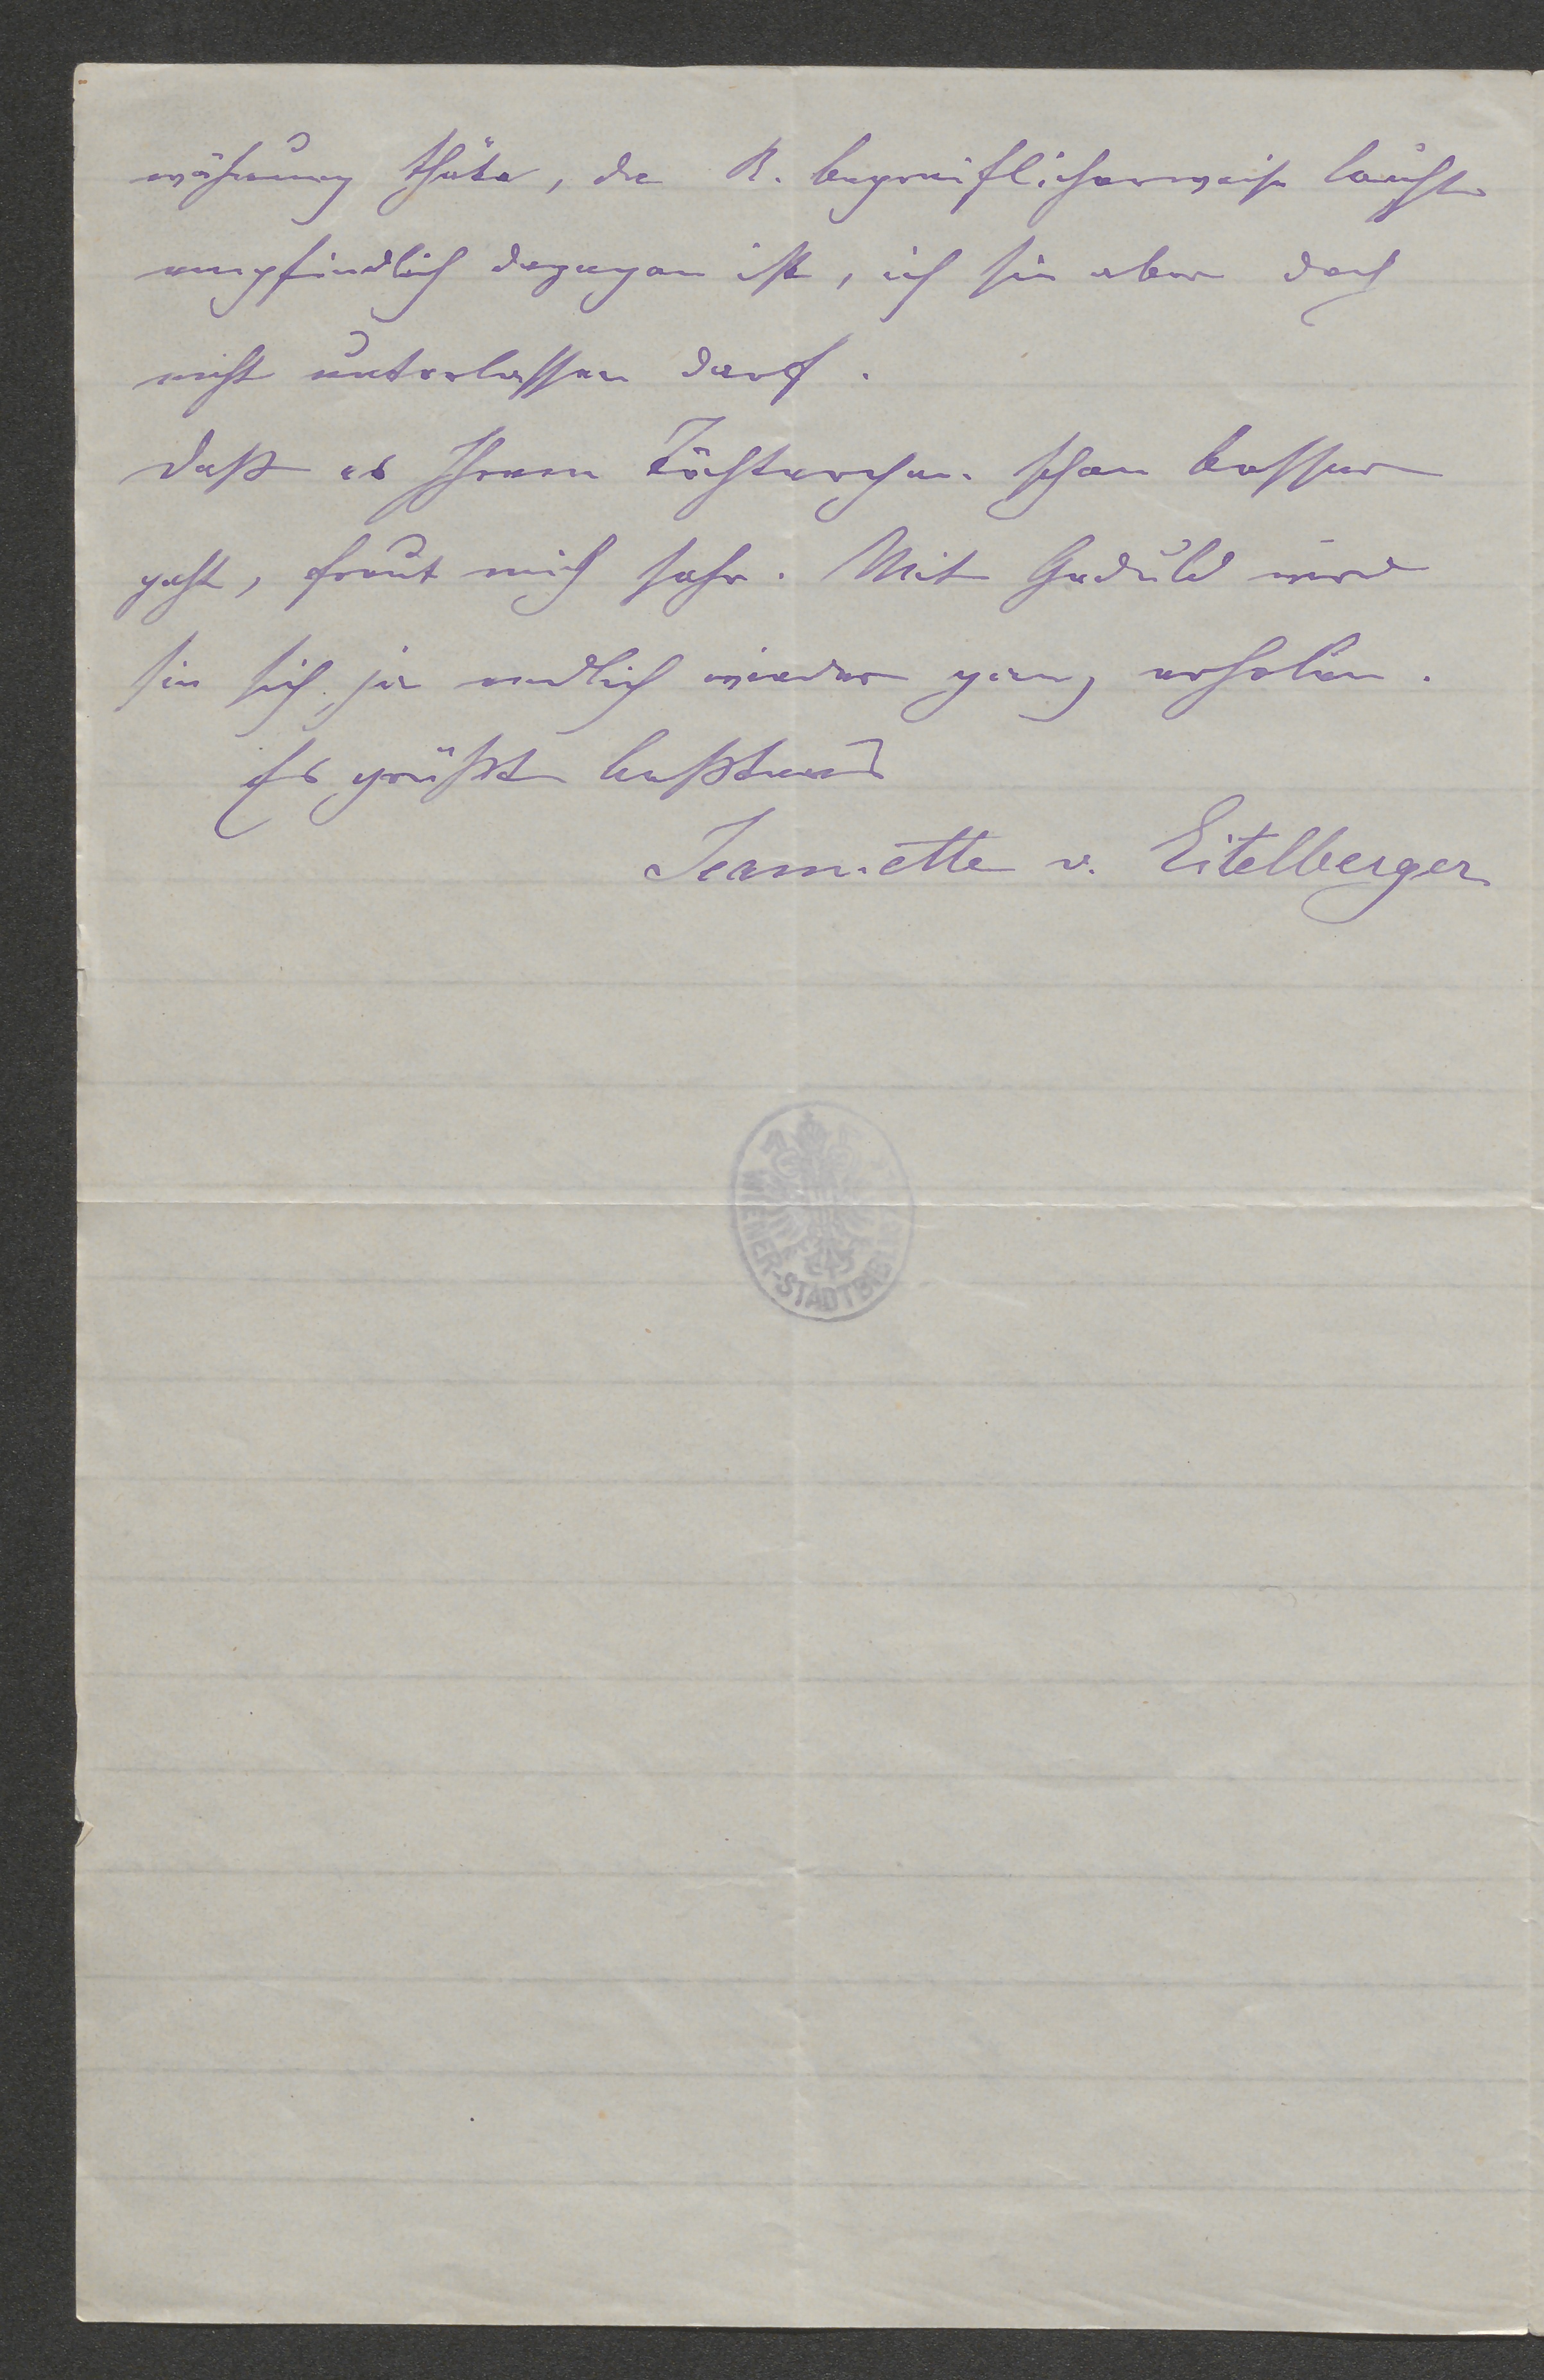 wähnung thäte, da R. begreiflicherweise leicht
empfindlich dagegen ist, ich sie aber doch
nicht unterlassen darf.
Daß es Ihrem Töchterchen schon besser
geht, freut mich sehr. Mit Geduld wird
sie sich ja endlich wieder ganz erholen.
Es grüßt bestens
Jeannette v. Eitelberger
WIENER-STADTBIBLIOT